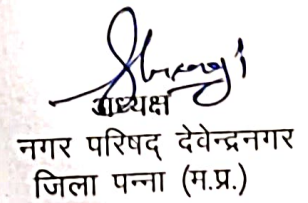 अध्यक्ष
नगर परिषद् देवेन्द्रनगर
जिला पन्ना (म.प्र.)